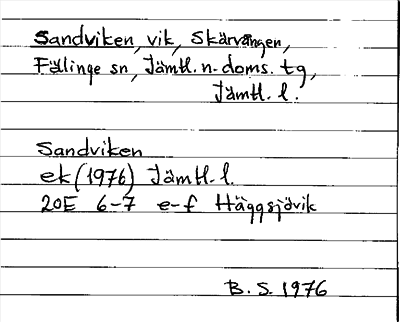 Sandviken, vik, Skärvången,
Fölinge sn, Jämtl. n. doms. tg,
Jämtl. l.
Sandviken
ek (1976) Jämtl. l.
20E 6-7 e-f Häggsjövik
B. S. 1976